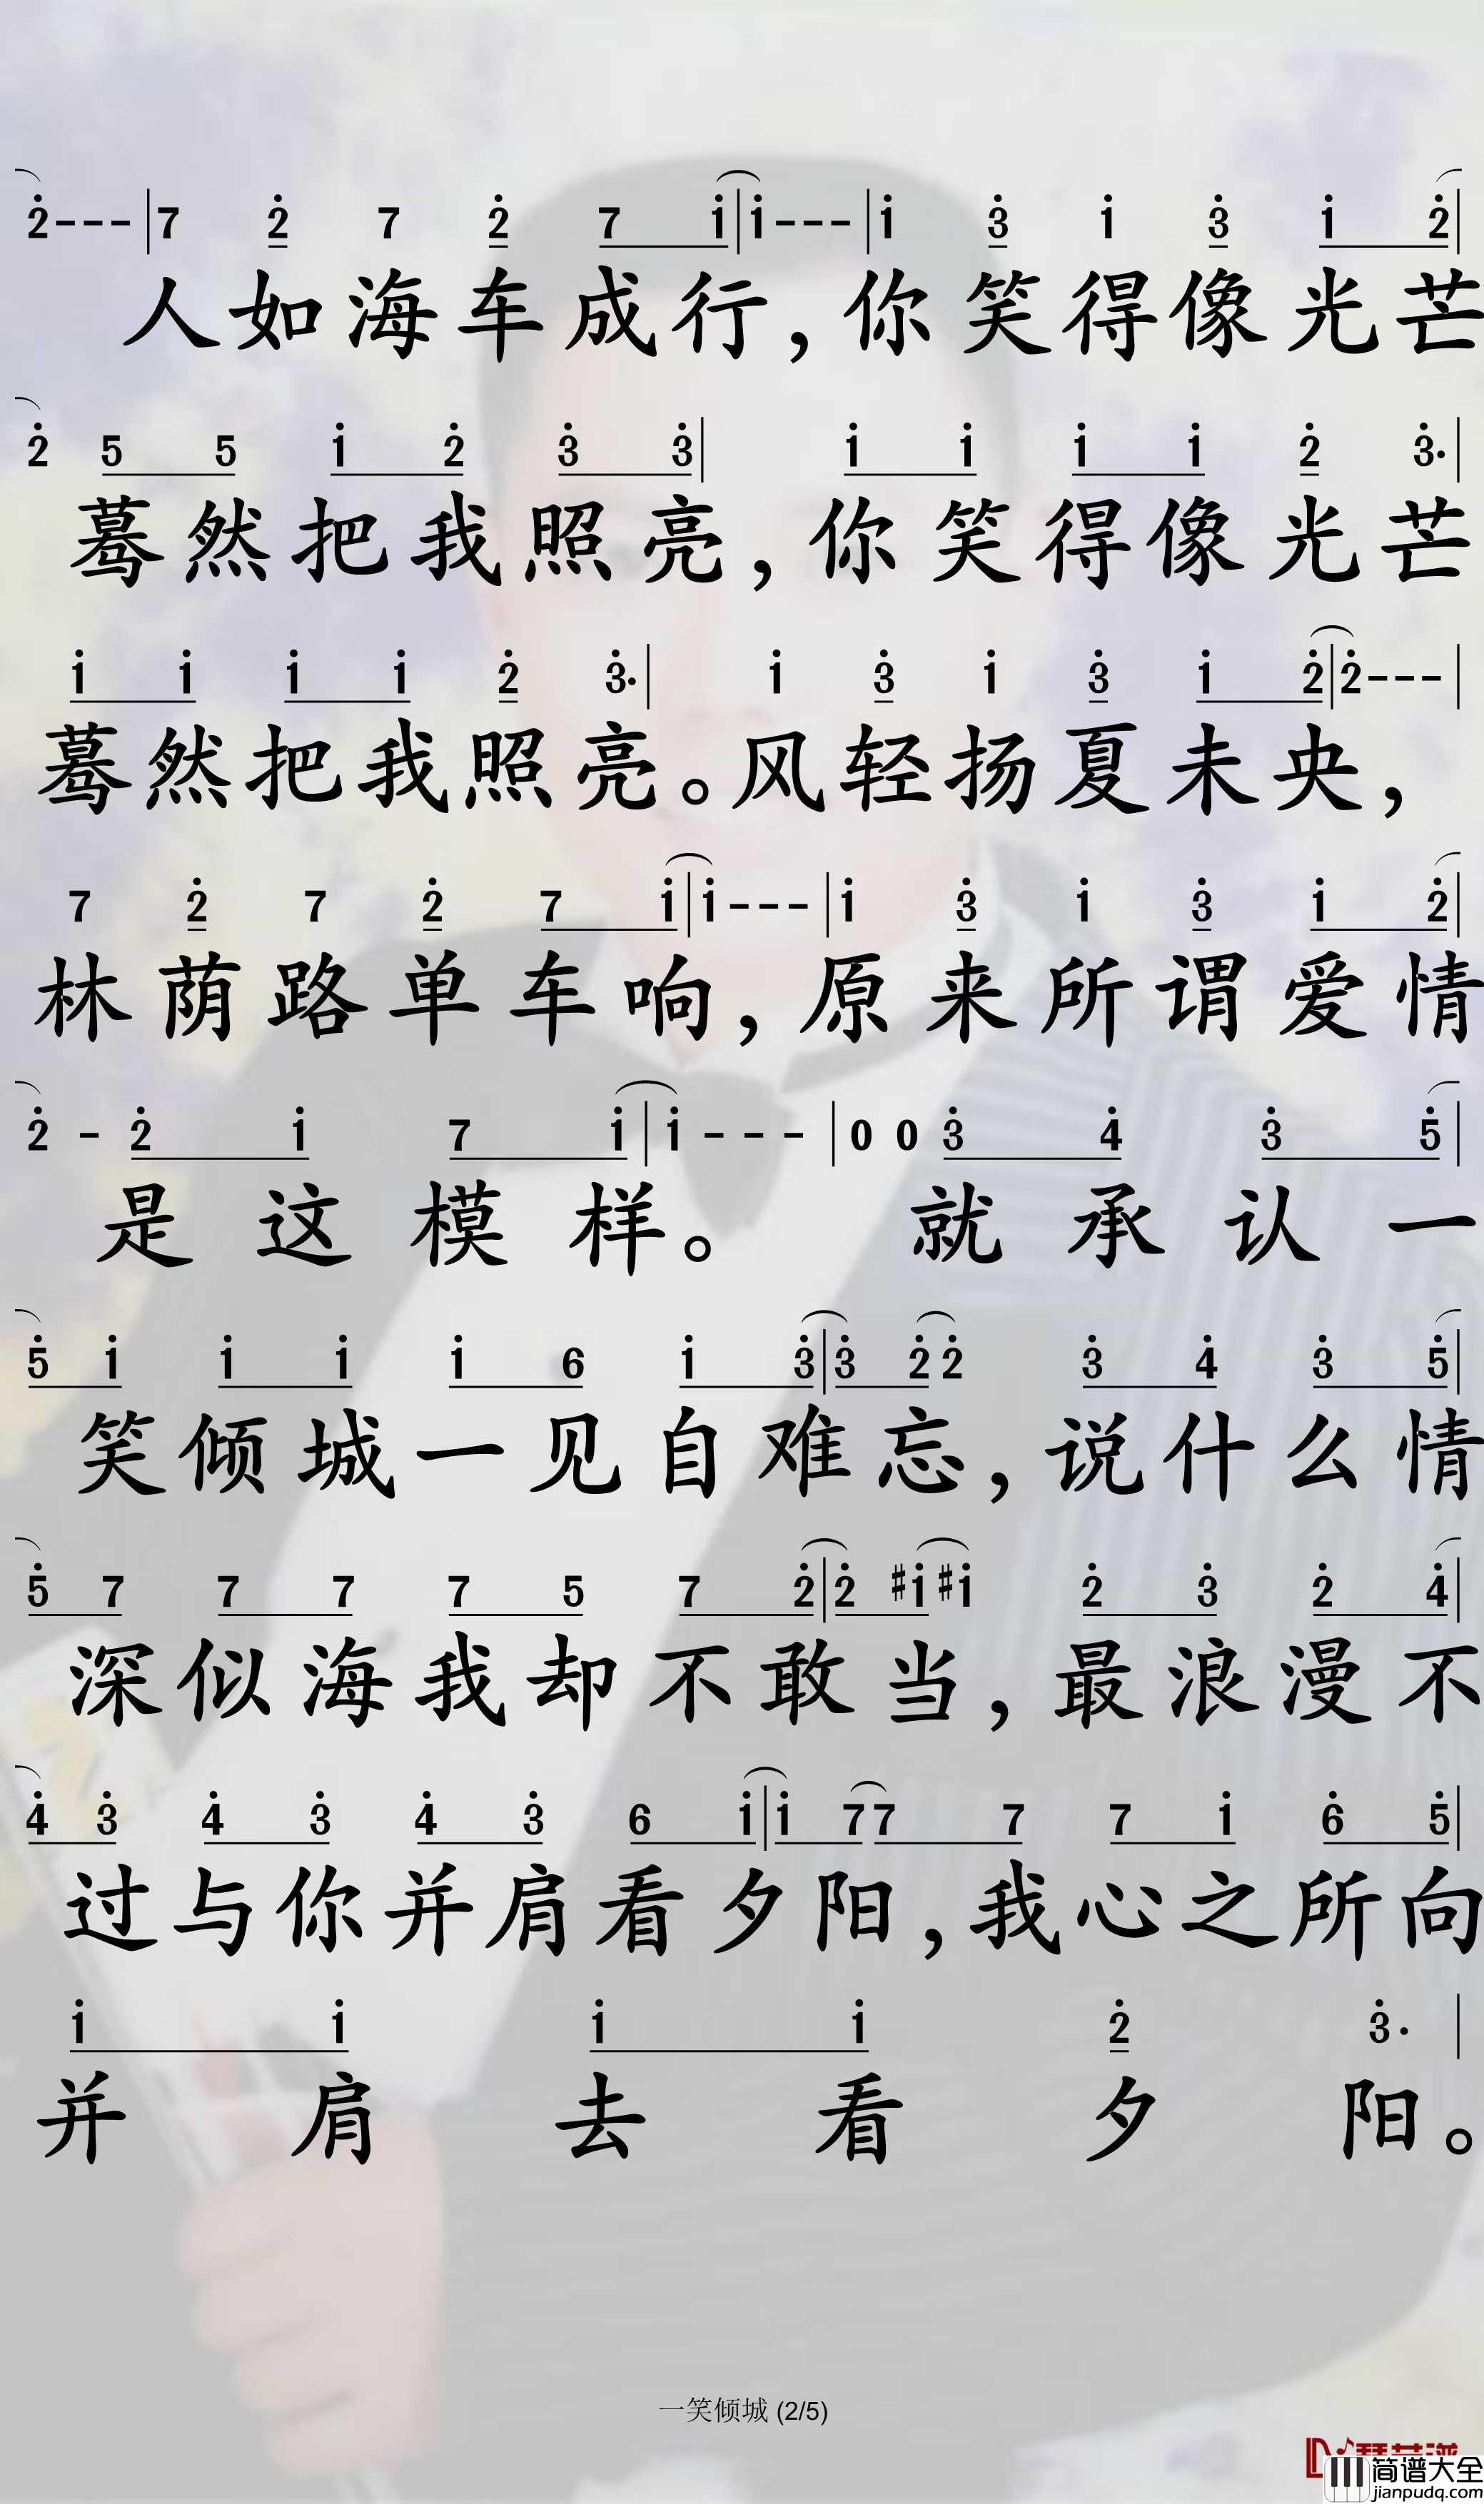 2̇ - - - | 7 2̇ 7 2̇ 7 1̇ | 1̇ - - - | 1̇ 3̇ 1̇ 3̇ 1̇ 2̇ |
人如海车成行，你笑得像光芒
2̇ 5 5 1̇ 2̇ 3̇ 3̇ | 1̇ 1̇ 1̇ 1̇ 2̇ 3̇· |
蓦然把我照亮，你笑得像光芒
1̇ 1̇ 1̇ 1̇ 2̇ 3̇· | 1̇ 3̇ 1̇ 3̇ 1̇ 2̇ | 2̇ - - - |
蓦然把我照亮。风轻扬夏未央，
7 2̇ 7 2̇ 7 1̇ | 1̇ - - - | 1̇ 3̇ 1̇ 3̇ 1̇ 2̇ |
林荫路单车响，原来所谓爱情
2̇ - 2̇ 1̇ 7 1̇ | 1̇ - - - | 0 0 3̇ 4̇ 3̇ 5̇ |
是这模样。就承认一
5̇ 1̇ 1̇ 1̇ 1̇ 6 1̇ 3̇ | 3̇ 2̇ 2̇ 3̇ 4̇ 3̇ 5̇ |
笑倾城一见自难忘，说什么情
5̇ 7 7 7 7 5 7 2̇ | 2̇ #1̇ #1̇ 2̇ 3̇ 2̇ 4̇ |
深似海我却不敢当，最浪漫不
4̇ 3̇ 4̇ 3̇ 4̇ 3̇ 6 1̇ | 1̇ 7 7 7 7 1̇ 6̇ 5̇ |
过与你并肩看夕阳，我心之所向
1̇ 1̇ 1̇ 1̇ 2̇ 3̇· |
并肩去看夕阳。
一笑倾城 (2/5)
简谱大全
jianpudq.com